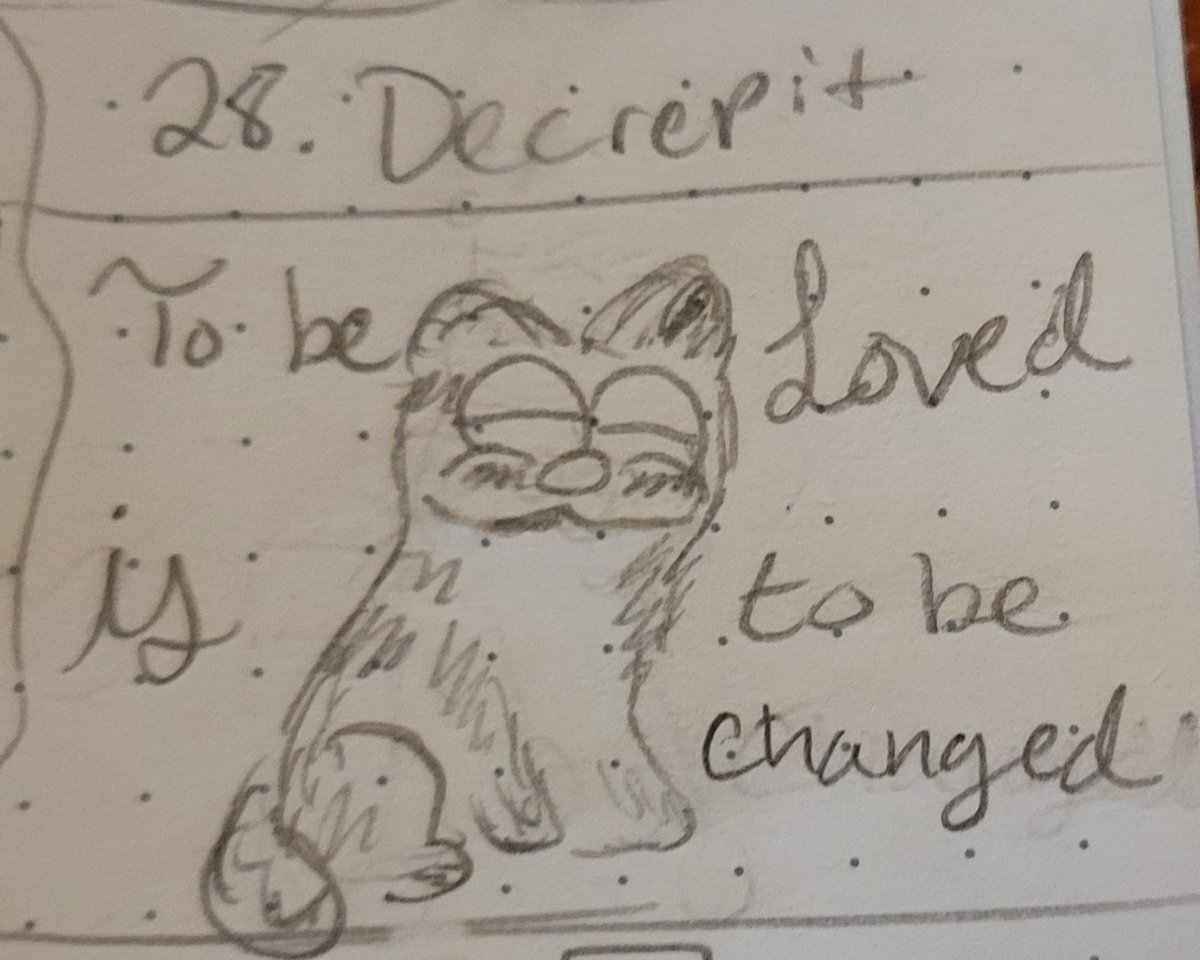 28. Decrepit
To be Loved
is to be
changed